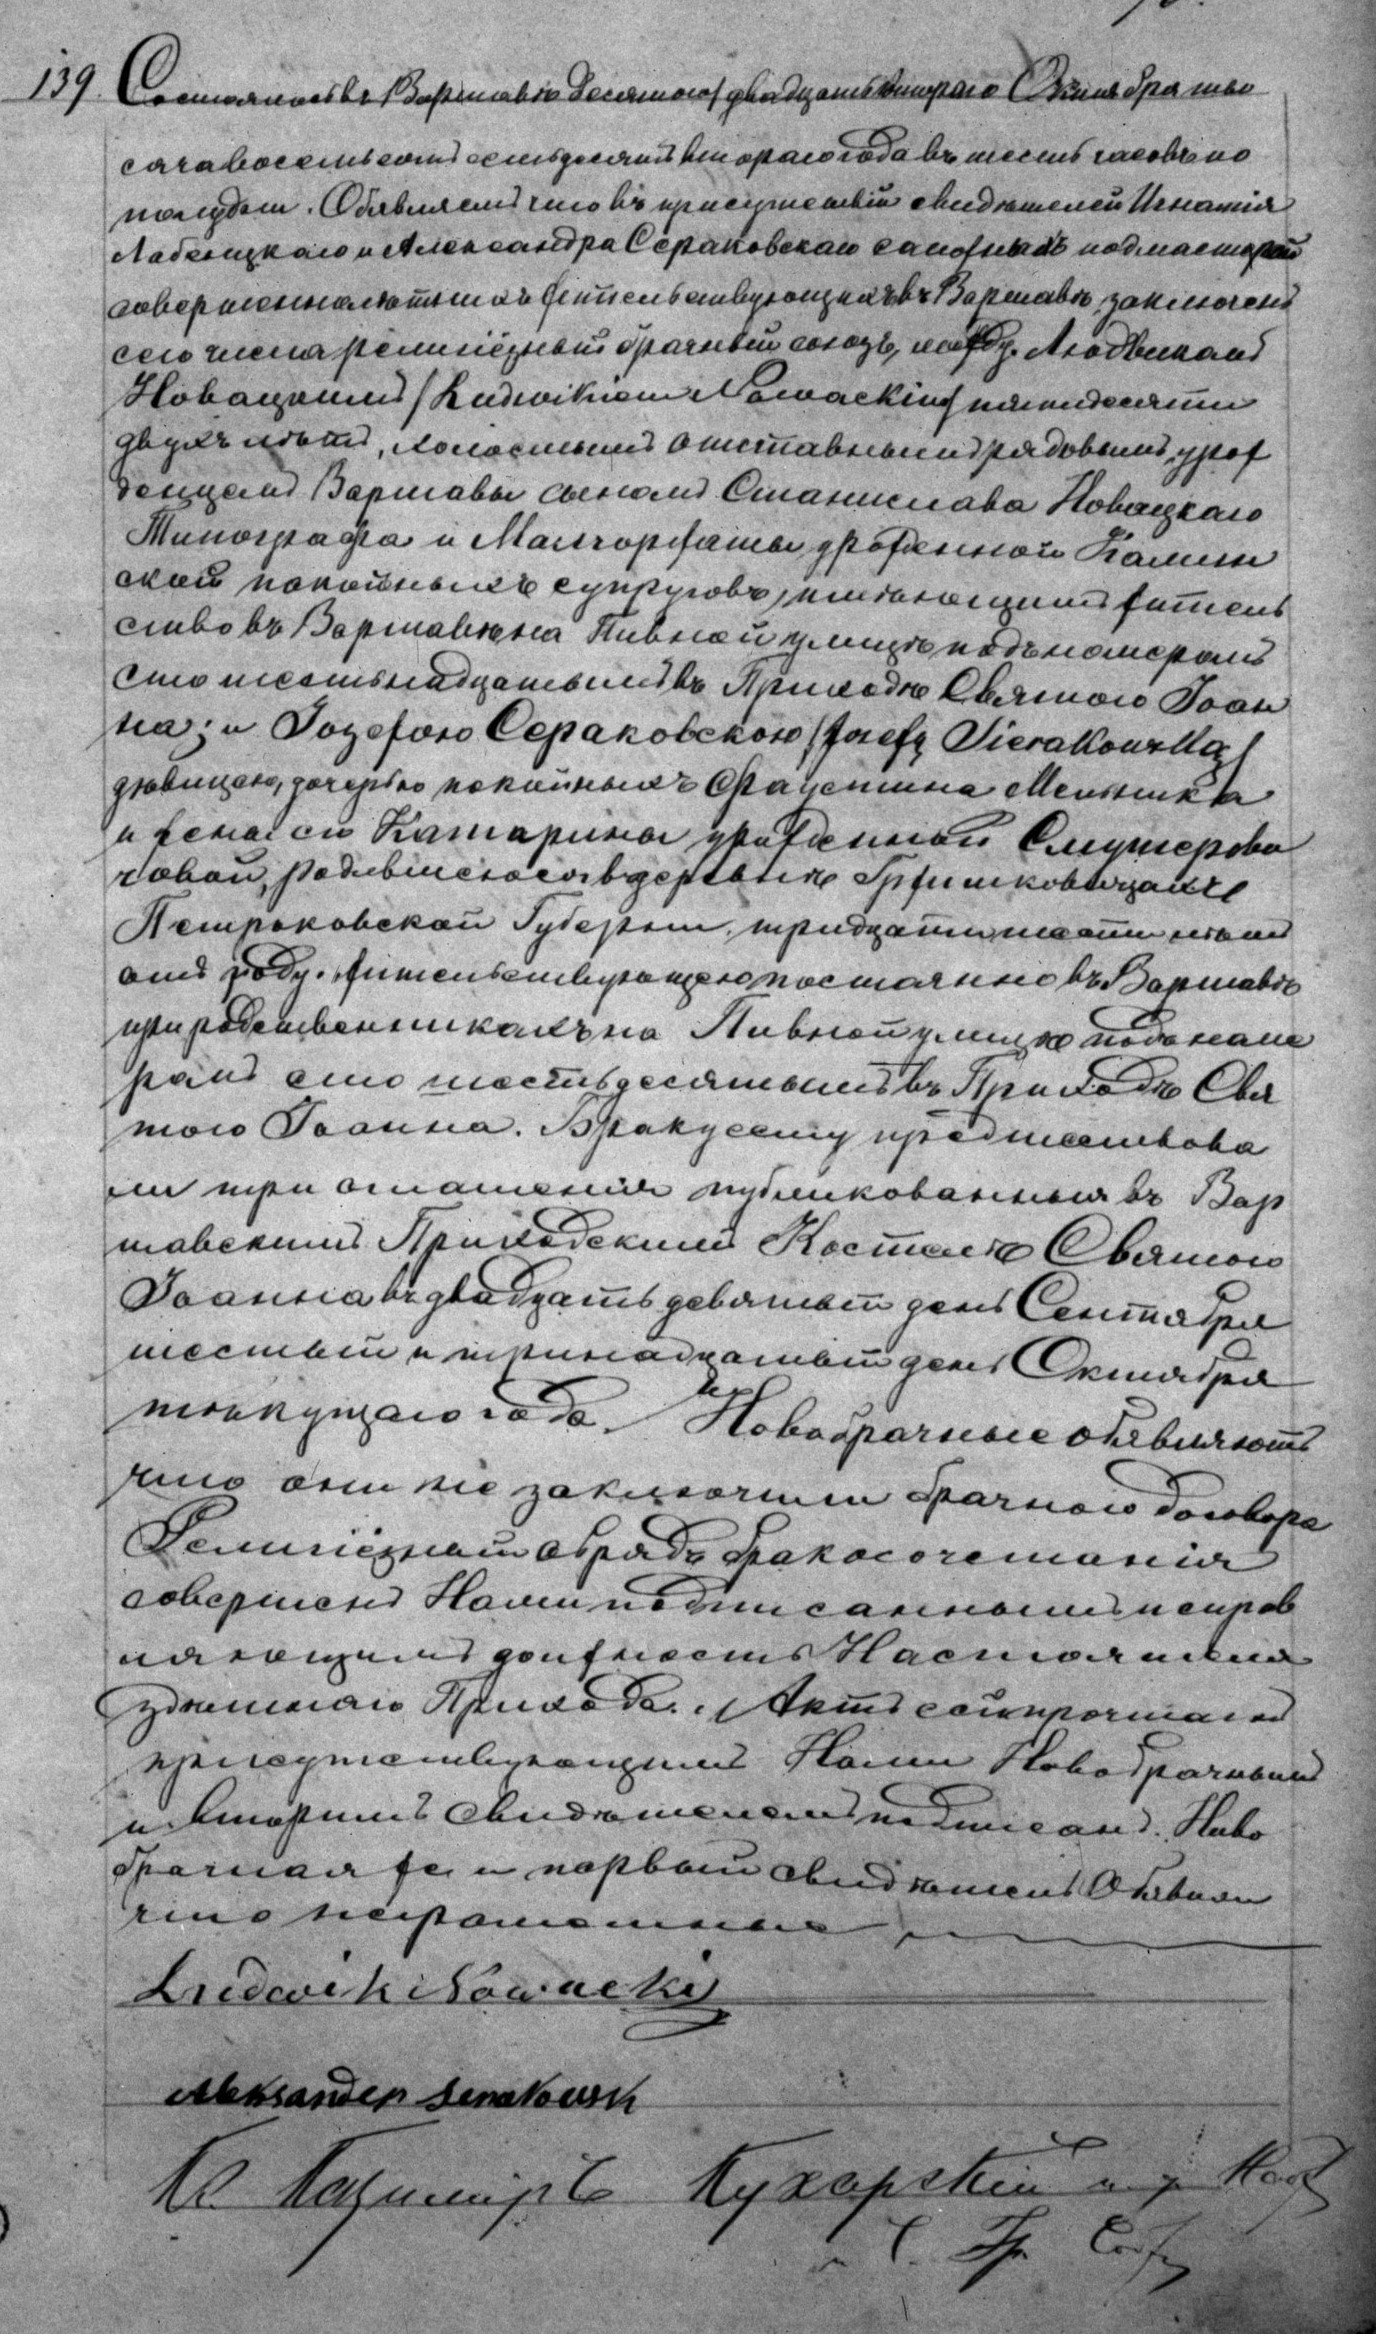 139. Состоялось въ Варшавѣ десятаго/двадцать втораго Октября тыс
сяча восемьсотъ семьдесятъ втораго года въ шесть часовъ по
полудни. Объявляемъ что въ присутствіи свидѣтелей Игнатія
Лабенцкаго и Александра Сераковскаго сапожныхъ подмастерей
совершеннолѣтныхъ жительствующихъ въ Варшавѣ, заключенъ
сего числа религіёзный брачный союзъ, между Людвикомъ
Новацкимъ /Ludwikiem Nowackim/ пятидесяти
двухъ лѣтъ, холостымъ отставнымъ рядовымъ, урож
донцемъ Варшавы сыномъ Станислава Новацкаго
Типографа и Малгоржаты урожденной Камин
ской покойныхъ супруговъ, имѣющимъ житель
ство въ Варшавѣ на Пивной улицѣ подъ номеромъ
сто шестьнадцатымъ въ Приходѣ Святого Іоан
на; и Іозефою Сераковскою /Józefą Sierakowską/
дѣвицею, дочерью покойныхъ Фаустина Мельника
и жены его Катарины урожденной
човой, родившеюся въ деревнѣ
Петроковской Губерніи, тридцати шести лѣтъ
отъ роду. жительствующею постоянно въ Варшавѣ
при родственникахъ на Пивной улицѣ подъ номе
ромъ сто шестьдесятымъ въ Приходѣ Свя
того Іоанна. Браку сему предшествова
ли три оглашенія публикованныя въ Вар
шавскимъ Приходскимъ Костелѣ Святого
Іоанна въ двадцать девятый день Сентября
шестый и тринадцатый день Октября
текущаго года. Новобрачные объявляютъ
что они не заключили брачного договора
Религіёзный обрядъ бракосочетанія
совершенъ Нами подписаннымъ исправ
ляющимъ должность Настоятеля
здѣшнаго Прихода. Актъ сей прочтанъ
присутствующимъ Нами Новобрачнымъ
и вторымъ свидѣтелемъ подписанъ. Ново
брачная же и первый свидѣтель объявили
что неграмотные
Ludwik Nowacki
Aleksander Serakowsk
Кс. Казимиръ Кухарскій